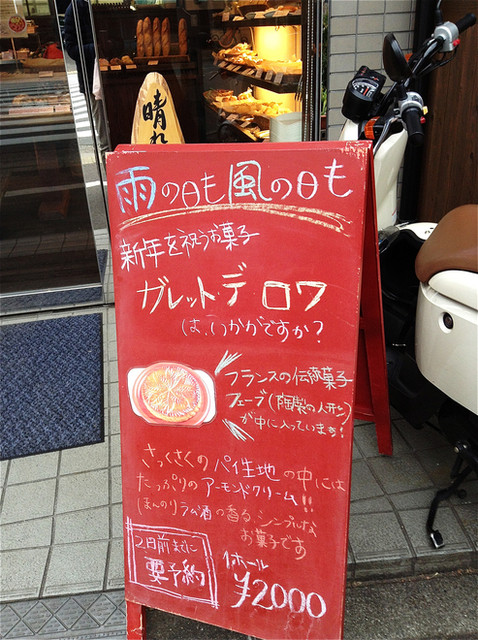 晴れ
雨の日も風の日も
新年を祝うお菓子
ガレットデロワ
は、いかがですか?
フランスの伝統菓子
フェーブ(陶製の人形)
が中に入っています!
さくさくのパイ生地の中には
たっぷりのアーモンドクリーム!!
ほんのりラム酒の香る、シンプルな
お菓子です
2日前までに
要予約
1ホール
¥2000